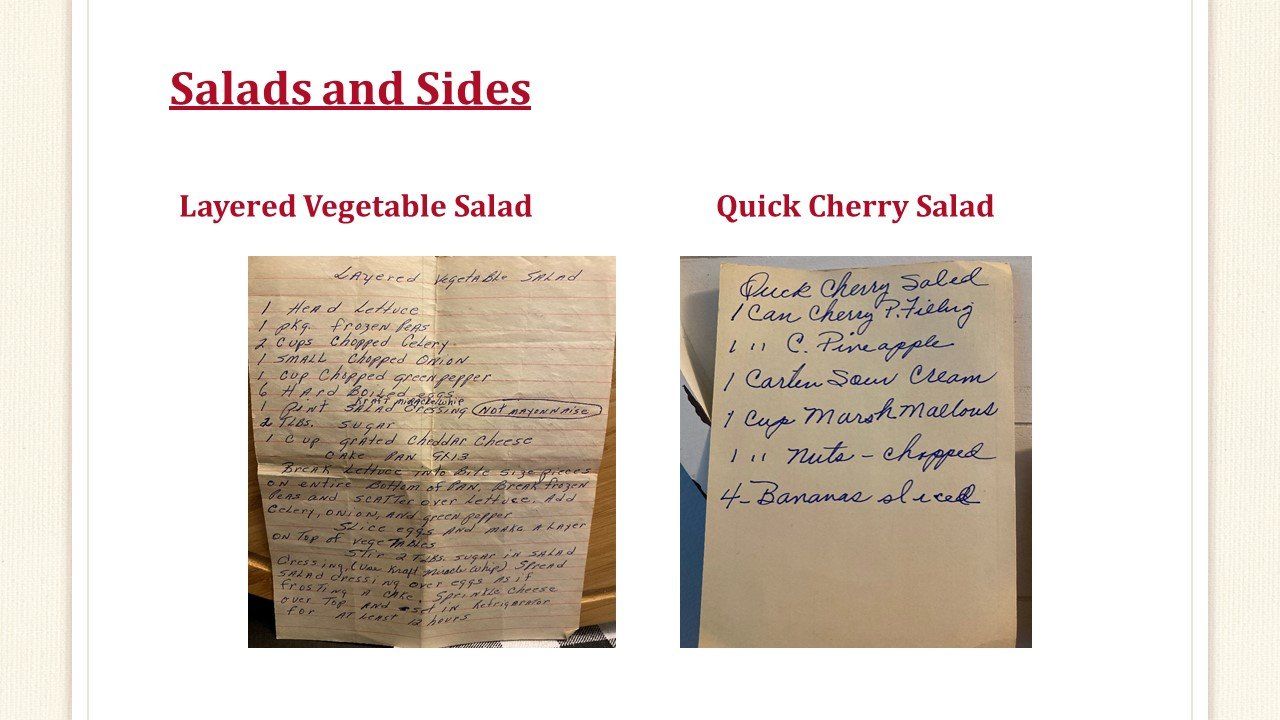 Salads and Sides
Layered Vegetable Salad
LAyered VegetABle SALAD
1 HEAD Lettuce
1 pkg. frozen Peas
2 Cups Chopped Celery
1 SMALL Chopped ONION
1 cup Chopped green pepper
6 HArd Boiled eggs
Kraft miracle whip
1 PiNT SALAD Dressing (NOT MAYONNAISE)
2 TLBS. SUgAR
1 Cup grATed CheDDAr Cheese
CAKE PAN 9X13
BreAK LeTTuce iNTo BiTe size pieces
ON eNTire BoTTom of PAN. BreAK frozeN
PeAs AND SCATTer over LeTTuce. ADD
Celery, ONiON, AND green pepper
SLice eggs AND MAKE A LAyer
ON Top of vegeTABLes
STir 2 TLBS. SUgAr iN SALAD
Dressing, (Use KrAfT MirAcle Whip) SpreAD
SALAD Dressing over eggs AS if
frosTiNg A CAKE. SpriNKLe Cheese
over Top AND seT iN RefrigerATor
for AT LeAsT 12 hours
Quick Cherry Salad
Quick Cherry Salad
1 Can Cherry P. Filling
1 " C. Pineapple
1 Carten Sour Cream
1 Cup Marsh Mallows
1 " Nuts - chopped
4 - Bananas sliced